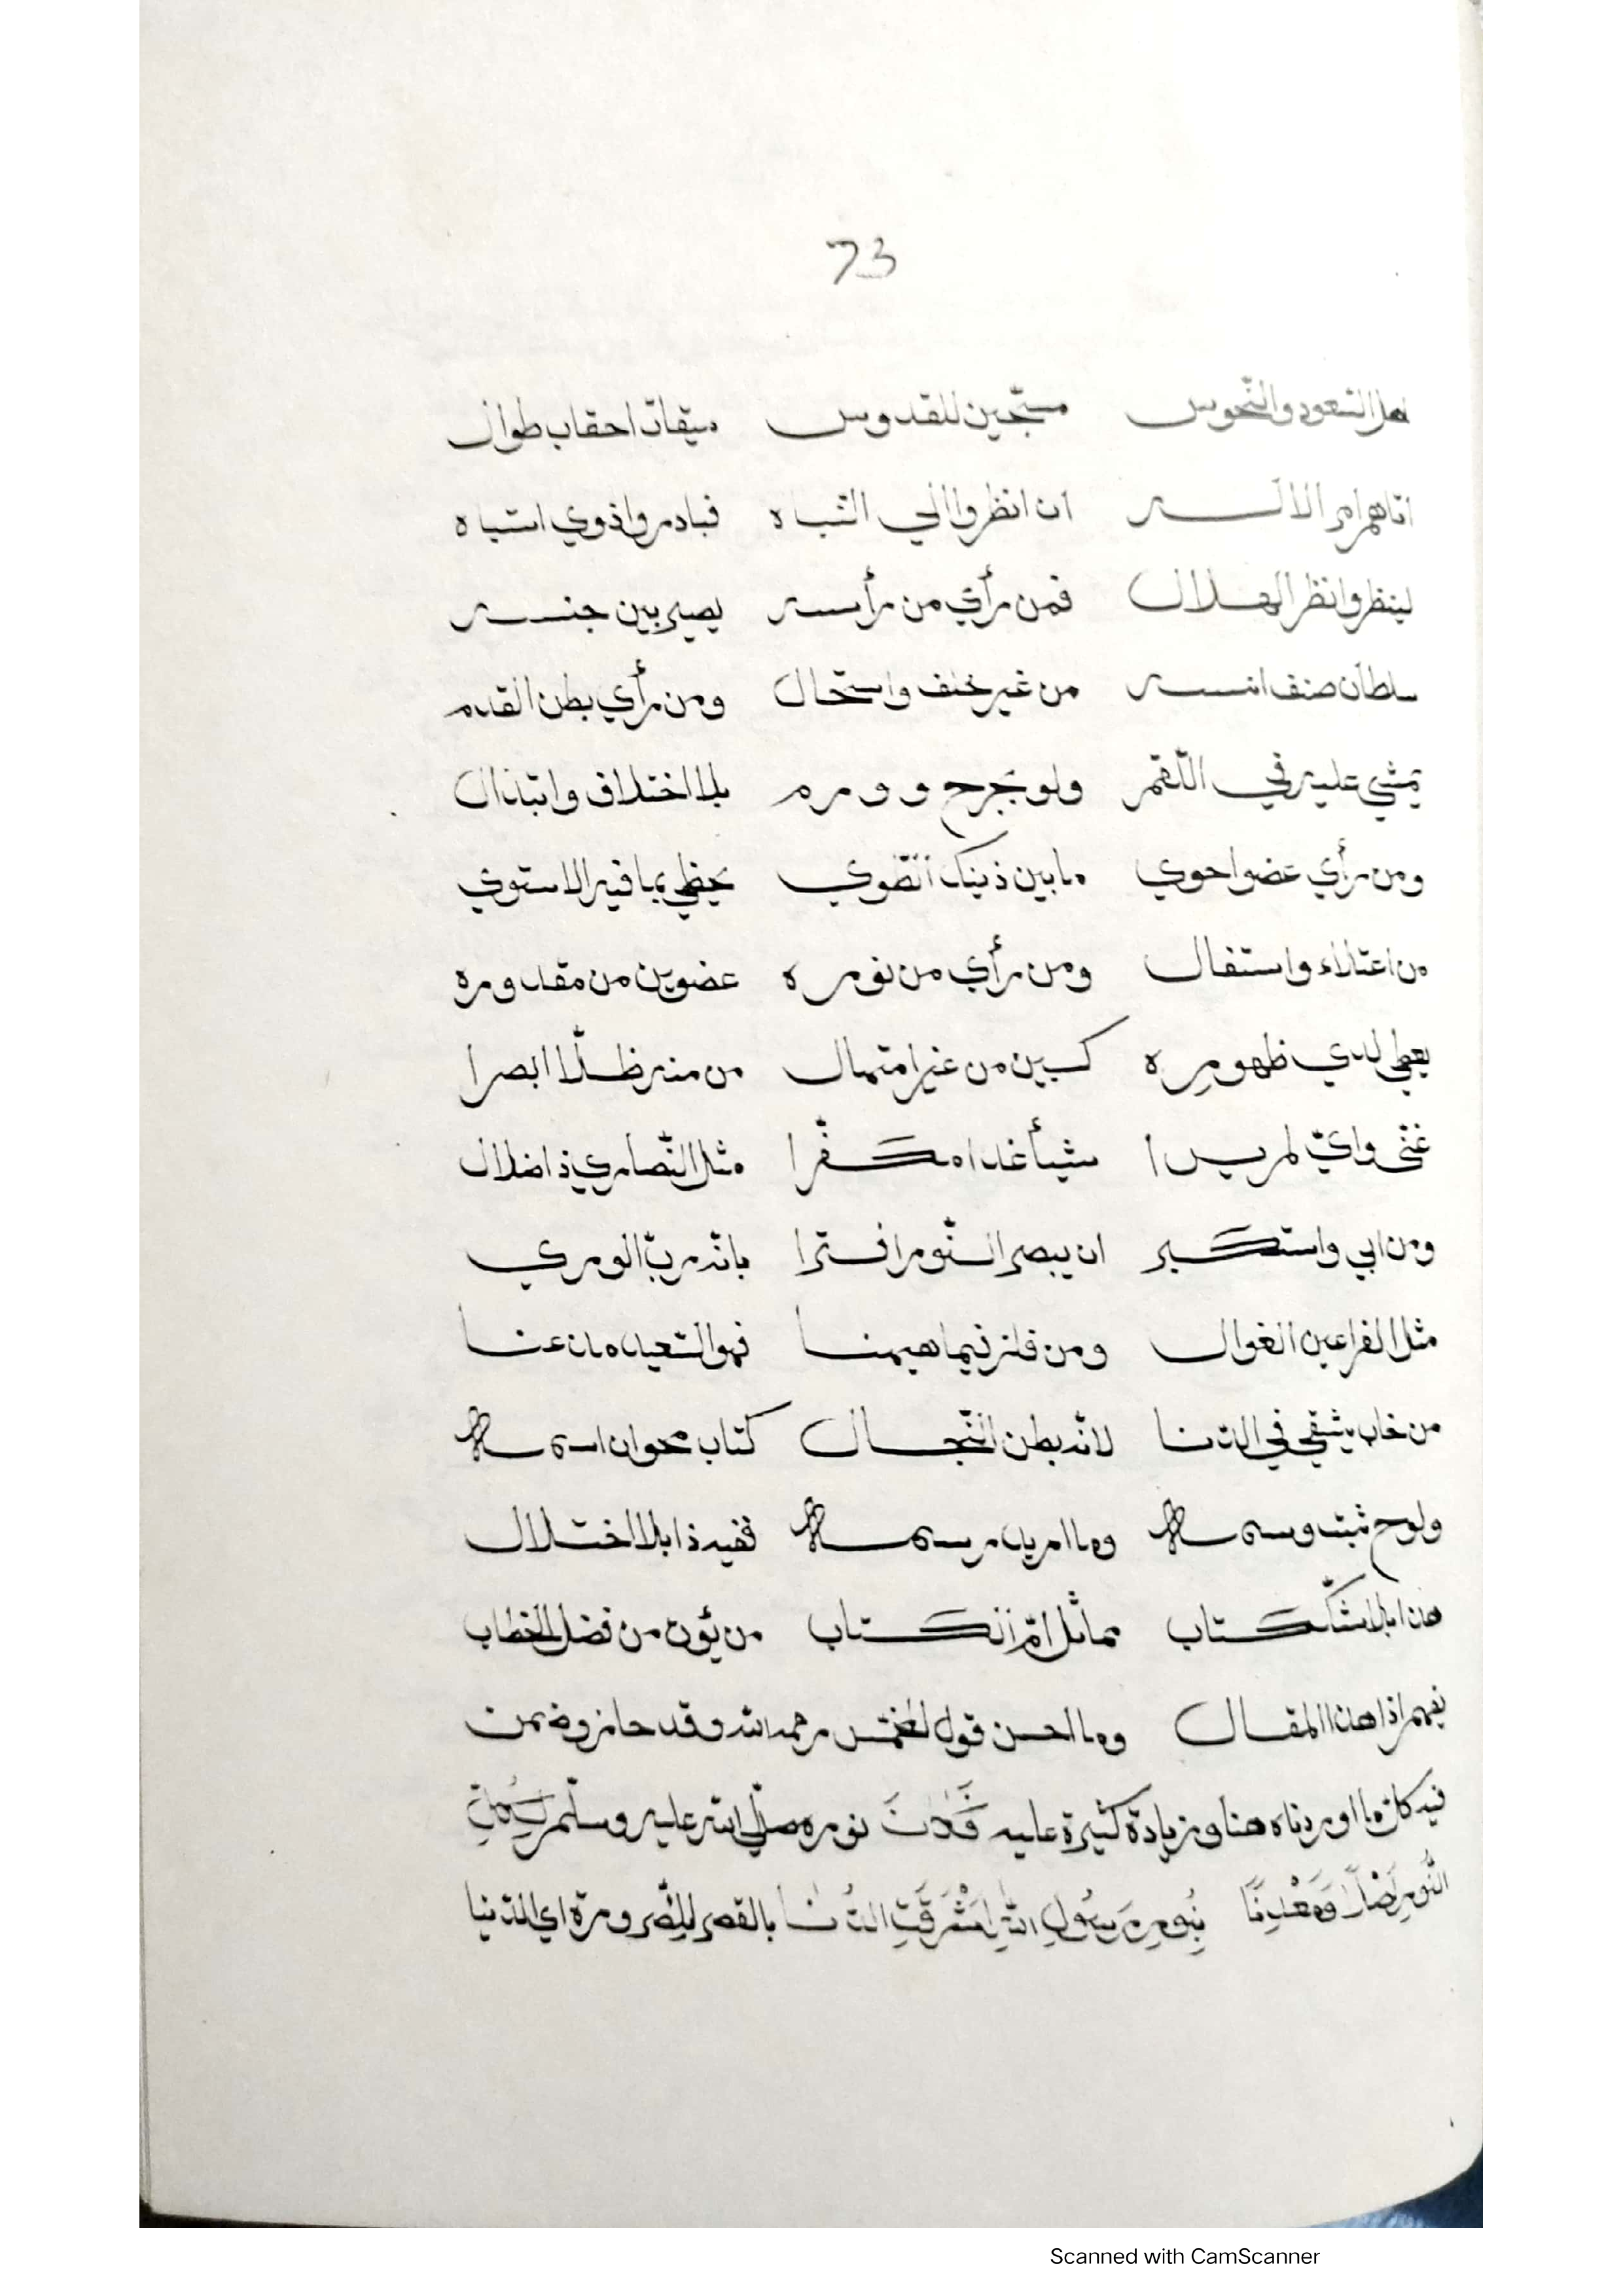 73
اهل السّعود والنّحوس مسبّحين للقدوس ميقات احقاب طوال
اتاهم امر الاله ان انظروا الي اشباه فبادروا ذوي انتباه
لينظروا نظر الهلال فمن رأي من رأسه يصير بين جنسه
سلطان صنف انسه من غير خلف واستحال ومن رأي بطن القدم
يمشي عليه في اللّقم ولو بجرح وورم بلا اختلاف وابتذال
ومن رأي عضوا حوي مابين ذينك انطوي يحظي بما فيه الاستوي
من اعتلاء واستفال ومن رأي من نوره عضوين من مقدوره
يعطي لدي ظهوره كسبين من غير امتهال من منه ظلّا ابصرا
غنّي وايّ لم يرا شيأ غدا مكفّرا مثل النّصاري ذا ضلال
ومن ابي واستكبر ان يبصر النّور افترا بانّه ربّ الوري
مثل الفراعين الغوال ومن فاز فيما هيمنا فهو السّعيد هاهنا
من خاب يشقي في الدّنا لانّه بطن النّجال كتاب محو ان اسمه
ولوح ثبت وسمه وما اريد رسمه ففيه ذا بلا اختلال
هذا بلا شكّ كتاب مماثل امّ الكتاب من يؤت من فضل الخطاب
يفهم اذا هذا المقال وما احسن قول المخمّس رحمه الله وقد حاز وضمن
فيه كل ما اوردناه هنا وزيادة كثيرة عليه فَكَانَ نوره صلّي الله عليه وسلّم لِكُلِّ
النُّورِ اَصْلًا وَمَعْدِنًا بِنُورِ رَسُولِ اللهِ اَشْرَقَتِ الدُّنَا بالقصر للضّرورة اي الدّنيا
Scanned with CamScanner